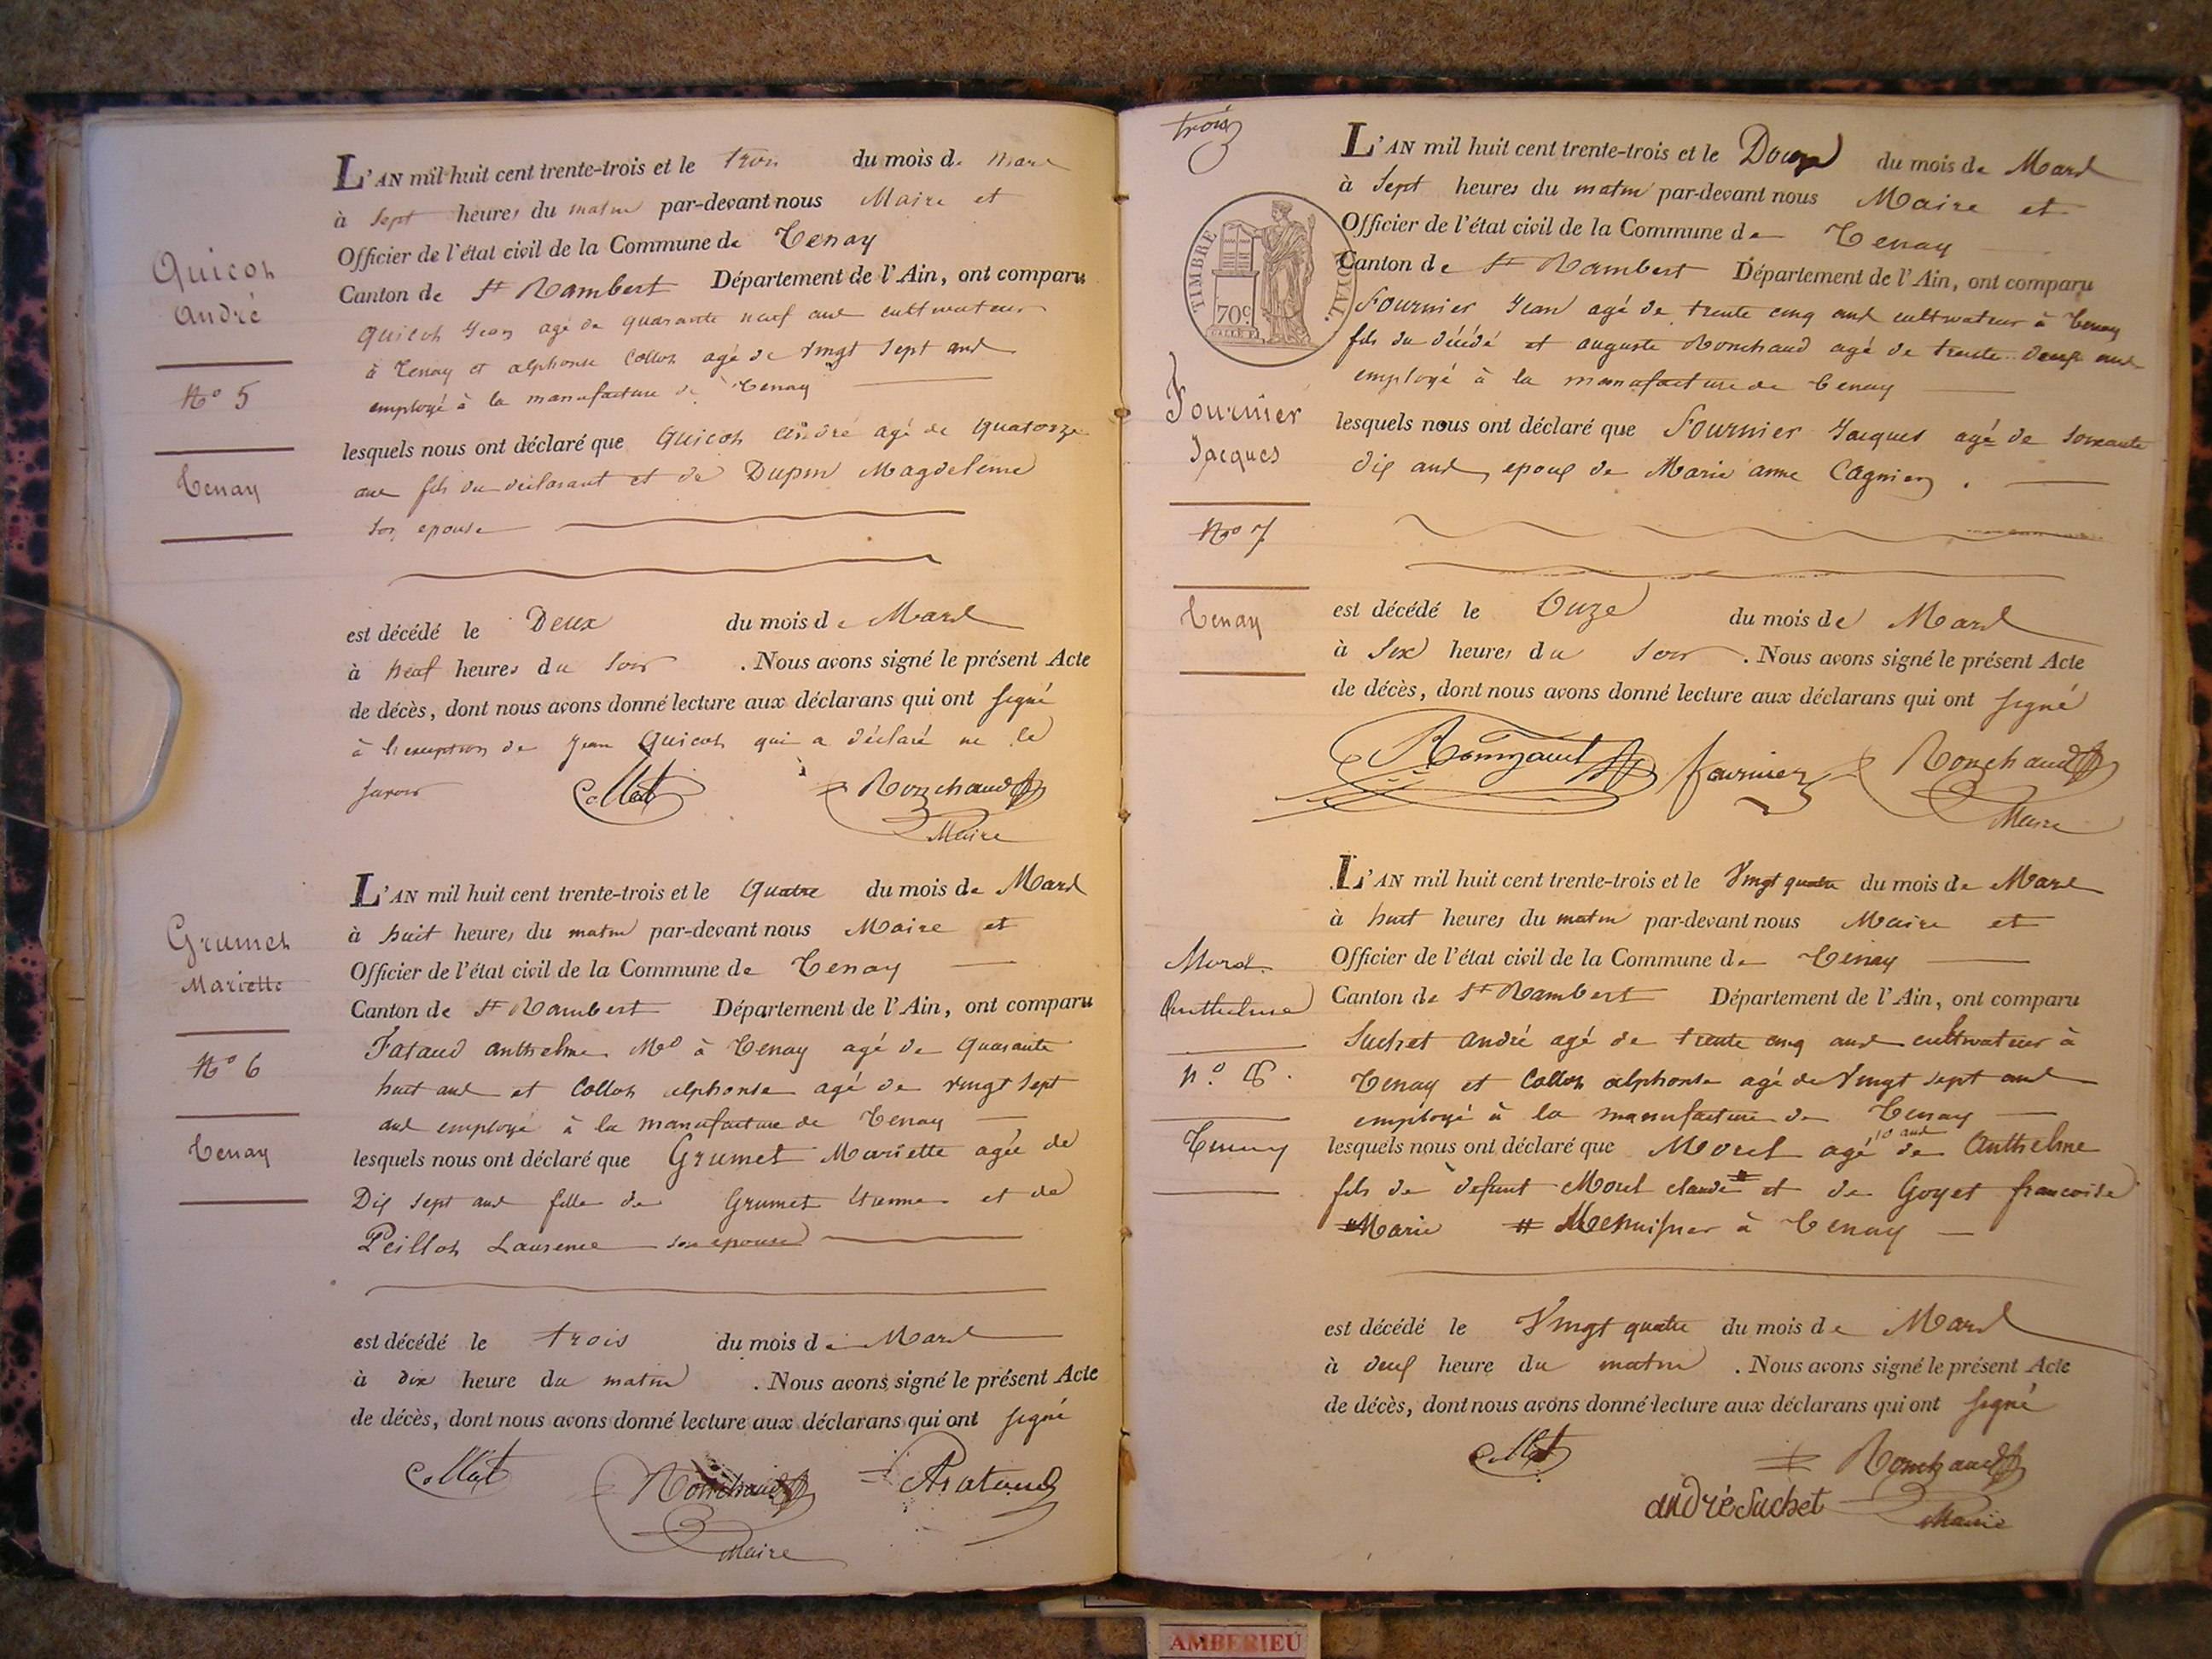 Quicoz
André
N° 5
Tenay
L'AN mil huit cent trente-trois et le trois du mois de Mars
à Sept heures du matin par-devant nous Maire et
Officier de l'état civil de la Commune de Tenay
Canton de St Rambert Département de l'Ain, ont comparu
Quicoz Jean agé de quarante neuf ans cultivateur
à Tenay et alphonse Collot agé de vingt Sept ans
employé à la manufacture de Tenay
lesquels nous ont déclaré que Quicoz André agé de Quatorze
ans fils du déclarant et de Dupin Magdeleine
son epouse
est décédé le Deux du mois de Mars
à neuf heures du Soir . Nous avons signé le présent Acte
de décès, dont nous avons donné lecture aux déclarans qui ont signé
à l'exception de Jean Quicoz qui a déclaré ne le
savoir Collot Ronchaud
Maire
Grumet
Mariette
N° 6
Tenay
L'AN mil huit cent trente-trois et le Quatre du mois de Mars
à huit heures du matin par-devant nous Maire et
Officier de l'état civil de la Commune de Tenay
Canton de St Rambert Département de l'Ain, ont comparu
anthelme Md à Tenay agé de quarante
huit ans et Collot alphonse agé de vingt Sept
ans employé à la manufacture de Tenay
lesquels nous ont déclaré que Grumet Mariette agée de
Dix sept ans fille de Grumet Etienne et de
Peilloz Laurence son epouse
est décédé le trois du mois de Mars
à dix heure du matin . Nous avons signé le présent Acte
de décès, dont nous avons donné lecture aux déclarans qui ont signé
Collot Ronchaud
Maire
trois
TIMBRE ROYAL.
70c
Fournier
Jacques
N° 7
Tenay
L'AN mil huit cent trente-trois et le Douze du mois de Mars
à Sept heures du matin par-devant nous Maire et
Officier de l'état civil de la Commune de Tenay
Canton de St Rambert Département de l'Ain, ont comparu
Fournier Jean agé de trente cinq ans cultivateur à Tenay
fils du décédé et auguste Ronchaud agé de trente deux ans
employé à la manufacture de Tenay
lesquels nous ont déclaré que Fournier Jacques agé de soixante
dix ans, epoux de Marie anne Cagnien .
est décédé le Onze du mois de Mars
à Six heures du Soir . Nous avons signé le présent Acte
de décès, dont nous avons donné lecture aux déclarans qui ont signé
fournier Ronchaud
Maire
Morel
Anthelme
n° 8
Tenay
L'AN mil huit cent trente-trois et le Vingt quatre du mois de Mars
à huit heures du matin par-devant nous Maire et
Officier de l'état civil de la Commune de Tenay
Canton de St Rambert Département de l'Ain, ont comparu
Suchet André agé de trente cinq ans cultivateur à
Tenay et Collot alphonse agé de Vingt sept ans
employé à la manufacture de Tenay
lesquels nous ont déclaré que Morel agé de 10 ans Anthelme
fils de defunt Morel claude # et de Goyet francoise
Marie # Menuisier à Tenay
est décédé le Vingt quatre du mois de Mars
à deux heure du matin . Nous avons signé le présent Acte
de décès, dont nous avons donné lecture aux déclarans qui ont signé
Collot Ronchaud
andré Suchet Maire
AMBERIEU